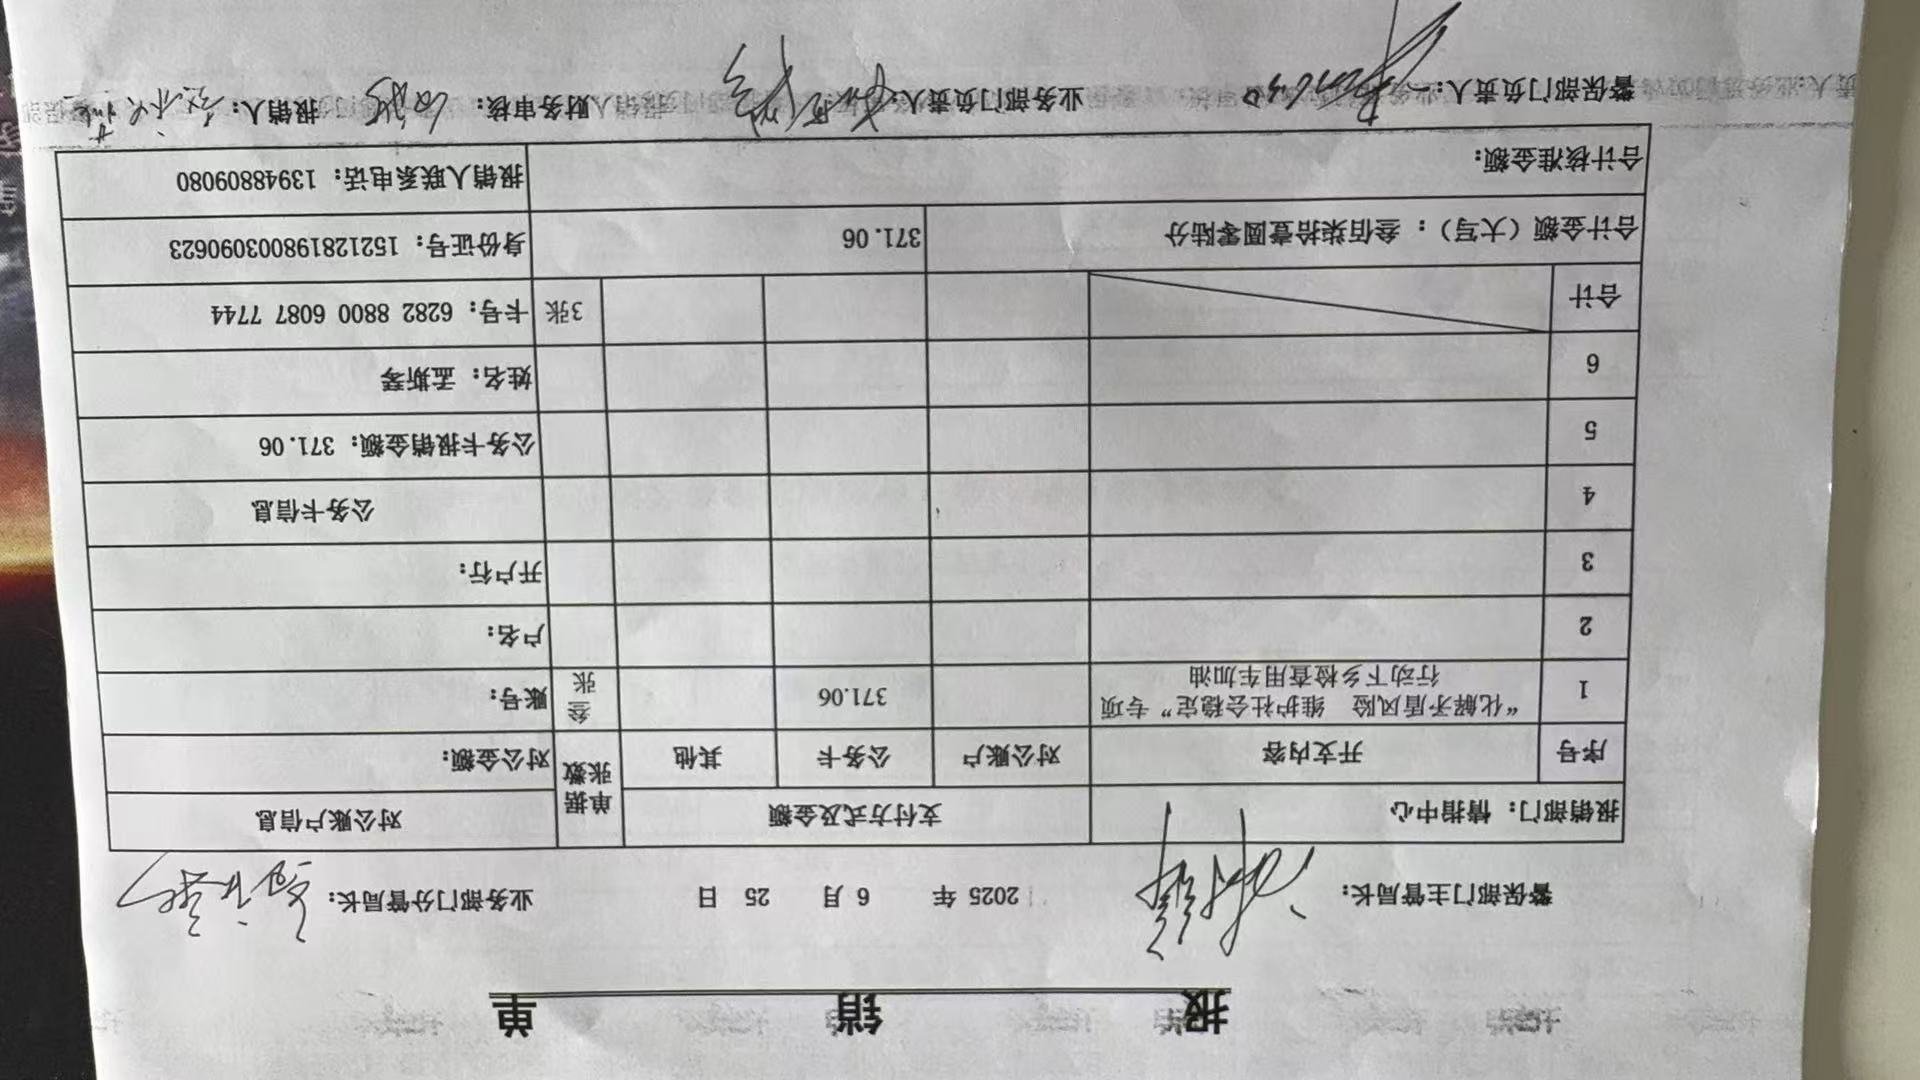 报 销 单
警保部门主管局长: 2025 年 6 月 25 日 业务部门分管局长:
报销部门: 情指中心 支付方式及金额 单据张数 对公账户信息
序号 开支内容 对公账户 公务卡 其他 对公金额:
1 “化解矛盾风险 维护社会稳定”专项行动下乡检查用车加油 371.06 叁张 账号:
2 户名:
3 开户行:
4 公务卡信息
5 公务卡报销金额: 371.06
6 姓名: 孟斯琴
合计 3张 卡号: 6282 8800 6087 7744
合计金额（大写）: 叁佰柒拾壹圆零陆分 371.06 身份证号: 152128198003090623
合计核准金额: 报销人联系电话: 13948809080
警保部门负责人: 业务部门负责人: 财务审核: 报销人: